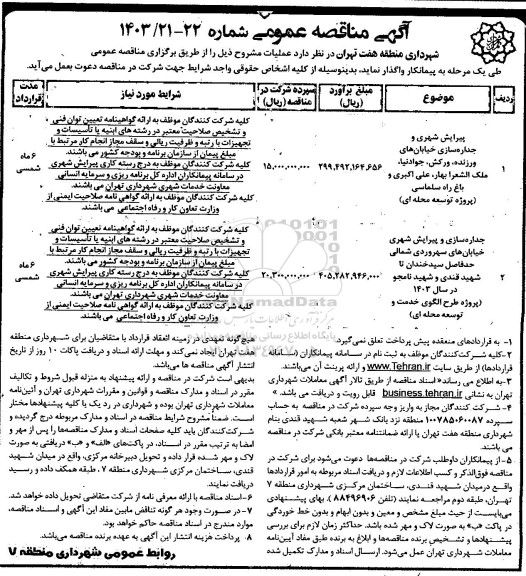 آگهی مناقصه عمومی شماره ۲۲-۱۴۰۳/۲۱
شهرداری منطقه هفت تهران در نظر دارد عملیات مشروح ذیل را از طریق برگزاری مناقصه عمومی
طی یک مرحله به پیمانکار واگذار نماید، بدینوسیله از کلیه اشخاص حقوقی واجد شرایط جهت شرکت در مناقصه دعوت بعمل می‌آید.
ردیف
موضوع
مبلغ برآورد (ریال)
سپرده شرکت در مناقصه (ریال)
شرایط مورد نیاز
مدت قرارداد
۱
پیرایش شهری و
جداره‌سازی خیابان‌های
ورزنده، ورکش، جوادنیا،
ملک الشعرا بهار، علی اکبری و
باغ راه سلماسی
(پروژه توسعه محله ای)
۲۹۹,۴۹۲,۱۶۴,۶۵۶
۱۵,۰۰۰,۰۰۰,۰۰۰
کلیه شرکت کنندگان موظف به ارائه گواهینامه تعیین توان فنی
و تشخیص صلاحیت معتبر در رشته های ابنیه یا تأسیسات و
تجهیزات با رتبه و ظرفیت ریالی و سقف مجاز انجام کار مرتبط با
مبلغ پیمان از سازمان برنامه و بودجه کشور می‌باشند.
کلیه شرکت کنندگان موظف به درج رسته کاری پیرایش شهری
در سامانه پیمانکاران اداره کل برنامه ریزی و سرمایه انسانی
معاونت خدمات شهری شهرداری تهران می باشند.
کلیه شرکت کنندگان موظف به ارائه گواهی نامه صلاحیت ایمنی از
وزارت تعاون کار و رفاه اجتماعی می باشند.
۶ ماه
شمسی
۲
جداره‌سازی و پیرایش شهری
خیابان‌های سهروردی شمالی
حدفاصل سیدخندان تا
شهید قندی و شهید نامجو
در سال ۱۴۰۳
(پروژه طرح الگوی خدمت و
توسعه محله ای)
۴۰۵,۲۸۲,۹۴۶,۰۰۰
۲۰,۳۰۰,۰۰۰,۰۰۰
کلیه شرکت کنندگان موظف به ارائه گواهینامه تعیین توان فنی
و تشخیص صلاحیت معتبر در رشته های ابنیه یا تأسیسات و
تجهیزات با رتبه و ظرفیت ریالی و سقف مجاز انجام کار مرتبط با
مبلغ پیمان از سازمان برنامه و بودجه کشور می باشند.
کلیه شرکت کنندگان موظف به درج رسته کاری پیرایش شهری
در سامانه پیمانکاران اداره کل برنامه ریزی و سرمایه انسانی
معاونت خدمات شهری شهرداری تهران می باشند.
کلیه شرکت کنندگان موظف به ارائه گواهی نامه صلاحیت ایمنی از
وزارت تعاون کار و رفاه اجتماعی می باشند.
۶ ماه
شمسی
۱- به قراردادهای منعقده پیش پرداخت تعلق نمی‌گیرد.
۲-کلیه شرکت‌کنندگان موظف به ثبت نام در سامانه پیمانکاران (سامانه
قراردادها) از طریق سایت www.Tehran.ir و ارائه پرینت آن می‌باشند.
۳-به اطلاع می رساند «اسناد مناقصه از طریق تالار آگهی معاملات شهرداری
تهران به نشانی business.tehran.ir قابل رویت و دریافت می باشد.»
۴- شرکت کنندگان مجاز به واریز وجه سپرده شرکت در مناقصه به حساب
سپرده ۱۰۰۷۸۵۰۶۰۰۸۷ منطقه نزد بانک شهر شعبه شهید قندی بنام
شهرداری منطقه هفت تهران یا ارائه ضمانتنامه معتبر بانکی شرکت در مناقصه
می باشند.
۵- از پیمانکاران داوطلب شرکت در مناقصه‌ها دعوت می‌شود برای شرکت در
مناقصه فوق‌الذکر و کسب اطلاعات لازم و دریافت اسناد مربوطه به امور قراردادها
واقع درمیدان شهید قندی، ساختمان مرکزی شهرداری منطقه ۷
تهران، طبقه دوم مراجعه نمایند (تلفن ۸۸۴۹۶۹۰۶). بهای پیشنهادی
می‌بایست از حیث مبلغ مشخص و معین و بدون ابهام و بدون خط خوردگی
در پاکت «ب» به صورت لاک و مهر شده باشد. حداکثر زمان لازم برای بررسی
پیشنهادها و تشخیص برنده مناقصه‌ها و ابلاغ به برنده طبق مفاد آیین‌نامه
معاملات شهرداری تهران عمل می‌شود. ارسال اسناد و مدارک تکمیل شده
هیچ‌گونه تعهدی در زمینه انعقاد قرارداد با متقاضیان برای شهرداری منطقه
هفت تهران ایجاد نمی‌کند و مهلت ارائه اسناد و دریافت پاکات ۱۰ روز از تاریخ
انتشار آگهی مناقصه ها می‌باشد.
بدیهی است شرکت در مناقصه و ارائه پیشنهاد به منزله قبول شروط و تکالیف
مقرر در اسناد و مدارک مناقصه و قوانین و مقررات شهرداری تهران و آیین‌نامه
معاملات شهرداری تهران بوده و شهرداری در رد یک یا کلیه پیشنهادها مختار
است. ضمناً مشروح شرایط مناقصه در اسناد و مدارک مربوطه درج گردیده و
شرکت‌کنندگان باید کلیه صفحات اسناد و مدارک مناقصه‌ها را پس از مهر و
امضا به ترتیب مقرر در اسناد، در پاکت‌های «الف» و «ب» دریافتی به صورت
لاک و مهر شده قرار داده و تحویل دبیرخانه مرکزی، واقع در میدان شهید
قندی، ساختمان مرکزی شهرداری منطقه ۷، طبقه همکف داده و رسید
دریافت نمایند.
۶-اسناد مناقصه با ارائه معرفی نامه از شرکت متقاضی تحویل داده خواهد شد.
۷- در صورت وجود هر گونه تناقض مابین مفاد این آگهی و اسناد مناقصه،
موارد مندرج در اسناد مناقصه حاکم خواهد بود.
۸- پرداخت هزینه انتشار این آگهی به عهده برنده مناقصه می‌باشد.
روابط عمومی شهرداری منطقه ۷